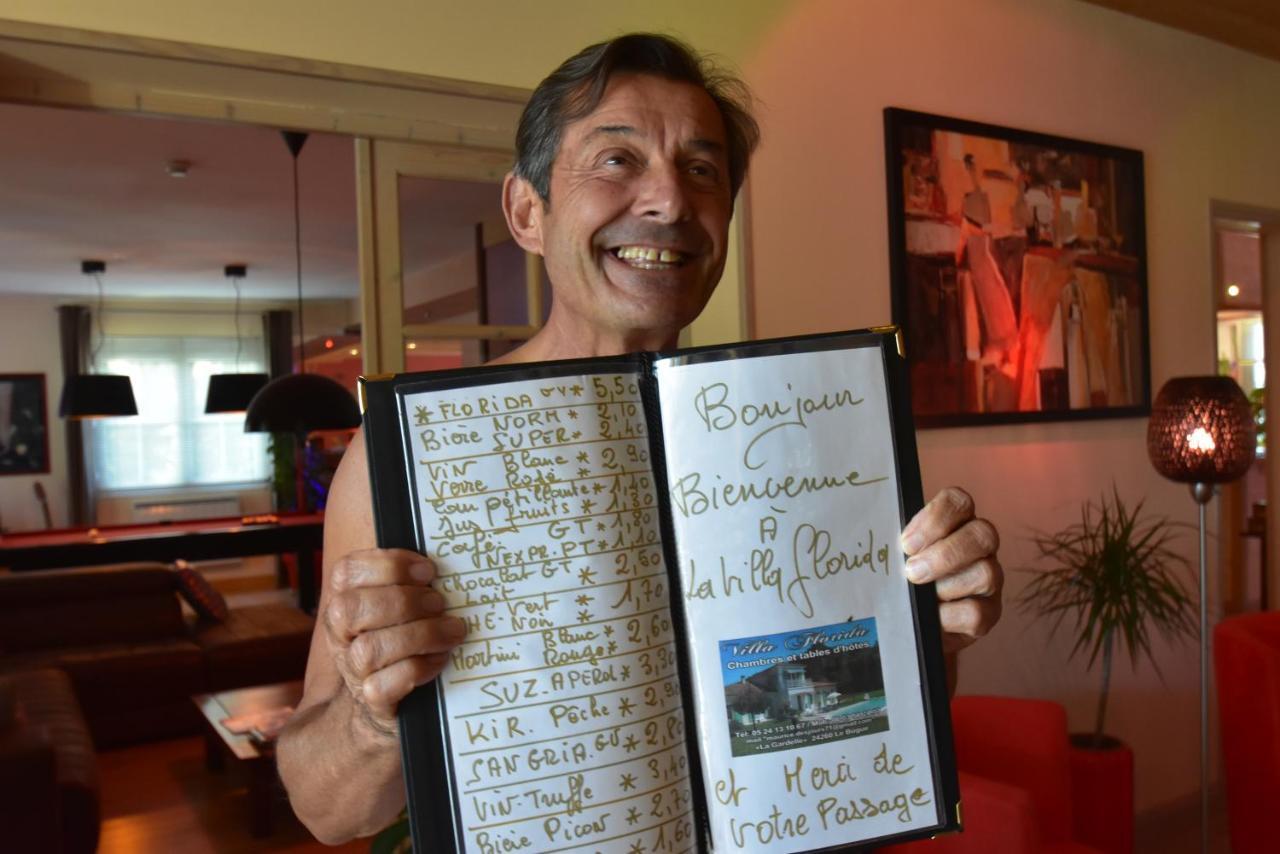 * FLORIDA GV * 5,50
Bière NORM * 2,10
SUPER * 2,40
Vin Blanc * 2,90
Verre Rosé *
Eau pétillante * 1,40
Jus fruits * 1,80
Café GT * 1,80
EXPR. PT * 1,10
Chocolat GT * 2,50
Lait
THÉ Vert * 1,70
Noir
Martini Blanc * 2,60
Rouge *
SUZ. APEROL * 3,30
KiR. Pêche * 2,90
SANGRIA. GV * 2,80
VIN-Truffe * 3,40
Bière Picon * 2,70
* 1,60
Bonjour
Bienvenue
À
La Villa Florida
Villa Florida
Chambres et tables d'hôtes
Tél: 05 24 13 10 67
mail "maurice.desjours71@gmail.com
«La Gardelle» 24260 Le Bugue
et Merci de
Votre Passage